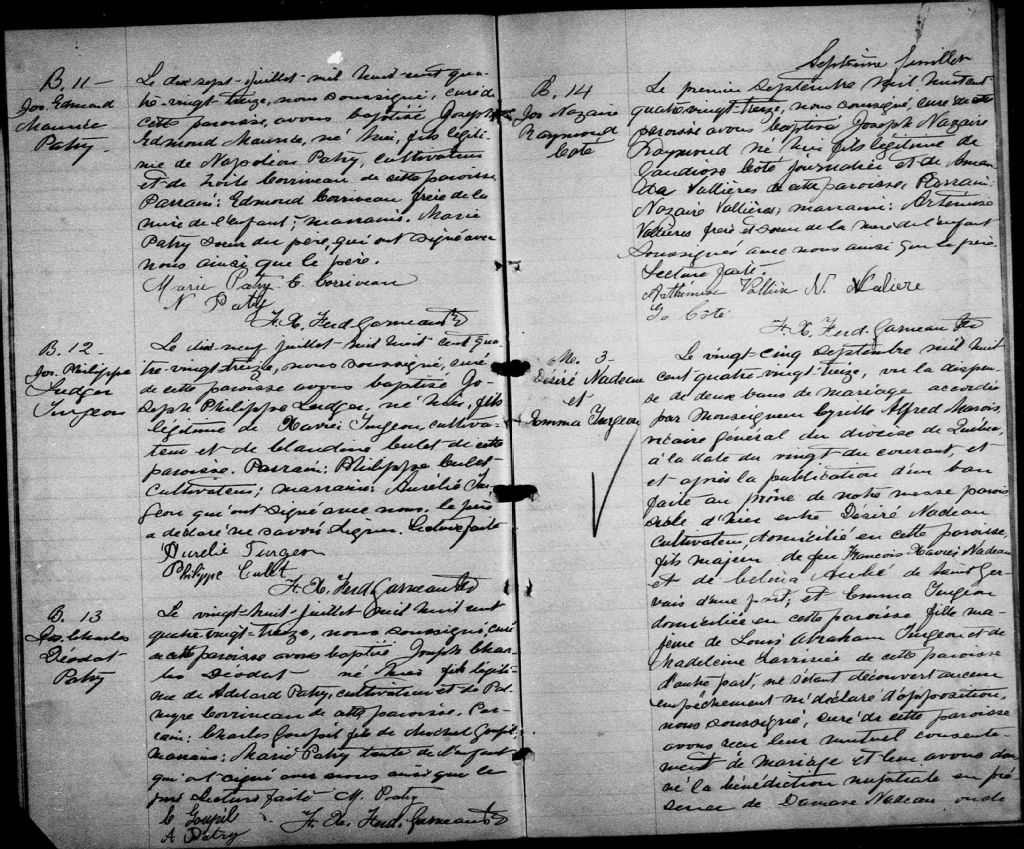 B. 11 -
Jos. Edmond
Maurice
Patry
Le dix sept juillet mil huit cent qua-
tre-vingt treize, nous soussigné, curé de
cette paroisse, avons baptisé Joseph
Edmond Maurice, né hier, fils légiti-
me de Napoléon Patry, cultivateur
et de Zoïle Corriveau de cette paroisse
Parrain: Edmond Corriveau frère de la
mère de l'enfant; marraine: Marie
Patry sœur du père, qui ont signé avec
nous ainsi que le père.
Marie Patry E. Corriveau
N Patry
F. X. Ferd. Garneau Ptre
B. 12 -
Jos. Philippe
Ludger
Turgeon
Le dix-neuf juillet mil huit cent qua-
tre-vingt-treize, nous soussigné, curé
de cette paroisse avons baptisé Jo-
seph Philippe Ludger, né hier, fils
légitime de Xavier Turgeon, cultiva-
teur et de Claudine Culet de cette
paroisse. Parrain: Philippe Culet
cultivateur; marraine: Aurélie Tur-
geon qui ont signé avec nous. le père
a déclaré ne savoir signer. Lecture faite
Aurelie Turgeon
Philippe Culet
F. X. Ferd. Garneau Ptre
B. 13
Jos. Charles
Déodat
Patry
Le vingt-huit juillet mil huit cent
quatre-vingt-treize, nous soussigné, curé
de cette paroisse avons baptisé Joseph Char-
les Déodat né hier fils légiti-
me de Adelard Patry, cultivateur et de Pal-
myre Corriveau de cette paroisse. Par-
rain: Charles Goupil fils de Michel Goupil
marraine: Marie Patry tante de l'enfant
qui ont signé avec nous ainsi que le
père Lecture faite M. Patry
C Goupil F. X. Ferd. Garneau Ptre
A Patry
Septième feuillet
B. 14
Jos Nazaire
Raymond
Coté
Le premier Septembre mil huit cent
quatre-vingt-treize, nous soussigné, curé de cette
paroisse avons baptisé Joseph Nazaire
Raymond né hier fils légitime de
Gaudiose Coté journalier et de Aman
da Vallières de cette paroisse. Parrain:
Nazaire Vallières; marraine: Artémise
Vallières frère et sœur de la mère de l'enfant
soussignés avec nous ainsi que le père.
Lecture faite.
Arthémise Vallière N. Valiere
Go Coté
F. X. Ferd. Garneau Ptre
M. 3 -
Désiré Nadeau
et
Emma Turgeon
Le vingt-cinq septembre mil huit
cent quatre-vingt-treize, vu la dispen-
se de deux bans de mariage accordée
par Monseigneur Cyrille Alfred Marois,
vicaire général du diocèse de Québec,
à la date du vingt du courant, et
et après la publication d'un ban
faite au prône de notre messe parois
siale d'hier entre Désiré Nadeau
cultivateur, domicilié en cette paroisse,
fils majeur de feu François Xavier Nadeau
et de Célina Audé de Saint Ger-
vais d'une part; et Emma Turgeon
domiciliée en cette paroisse, fille ma-
jeure de Louis Abraham Turgeon et de
Madeleine Larrivée de cette paroisse
d'autre part, ne s'étant découvert aucun
empêchement ni déclaré d'opposition,
nous soussigné, curé de cette paroisse
avons reçu leur mutuel consente-
ment de mariage et leur avons don
né la bénédiction nuptiale en pré
sence de Damase Nadeau oncle